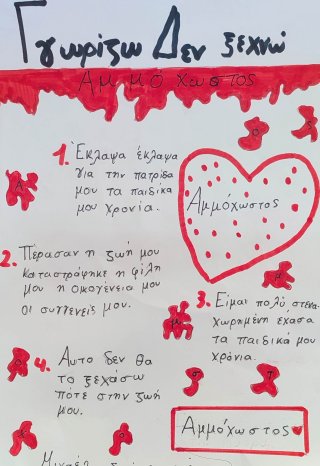 Γνωρίζω Δεν ξεχνώ
Αμμόχωστος
1. Έκλαψα έκλαψα
για την πατρίδα
μου τα παιδικά
μου χρονία.
Αμμόχωστος
2. Πέρασαν η ζωή μου
καταστράφηκε η φίλη
μου η οικογένεια μου
οι συγγενείς μου.
3. Είμαι πολύ στενα-
χωρημένη έχασα
τα παιδικά μου
χρόνια.
4. Αυτο δεν θα
το ξεχάσω
πότε στην ζωή
μου.
Αμμόχωστος